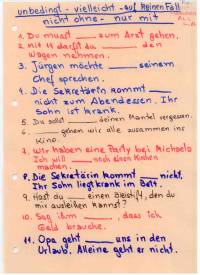 unbedingt - vielleicht - auf keinen Fall
nicht ohne - nur mit
1. Du musst ____ zum Arzt gehen.
2. Mit 14 darfst du ____ den
Wagen nehmen.
3. Jürgen möchte ____ seinem
Chef sprechen.
4. Die Sekretärin kommt ____
nicht zum Abendessen. Ihr
Sohn ist krank.
5. Du sollst ____ deinen Mantel vergessen.
6. ____ gehen wir alle zusammen ins
Kino.
7. Wir haben eine Party bei Michaela
Ich will ____ noch einen Kuchen
machen.
8. Die Sekretärin kommt ____ nicht.
Ihr Sohn liegt krank im Bett.
9. Hast du ____ einen Bleistift, den du
mir ausleihen kannst?
10. Sag ihm ____, dass ich
Geld brauche.
11. Opa geht ____ uns in den
Urlaub. Alleine geht er nicht.